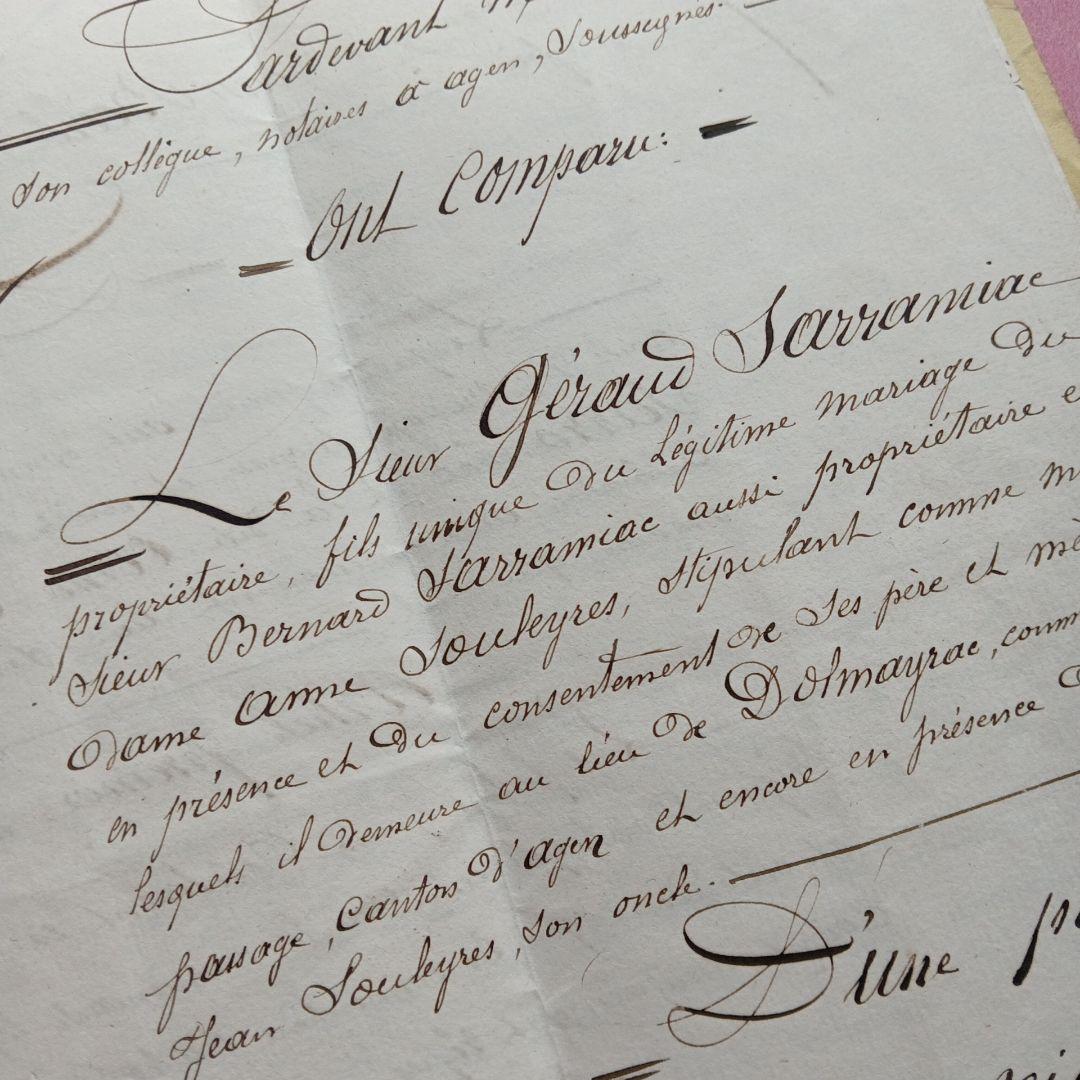 Pardevant
son collègue, notaires à agen, soussignés.
Ont Comparu:
Le Sieur Géraud Sarramiac
propriétaire, fils unique du légitime mariage du
Sieur Bernard Sarramiac aussi propriétaire e
dame anne Souleyres, stipulant comme m
en présence et du consentement de ses père et mè
lesquels il demeure au lieu de Dolmayrac, comm
passage, canton d'agen et encore en présence d
Jean Souleyres, son oncle.
D'une p